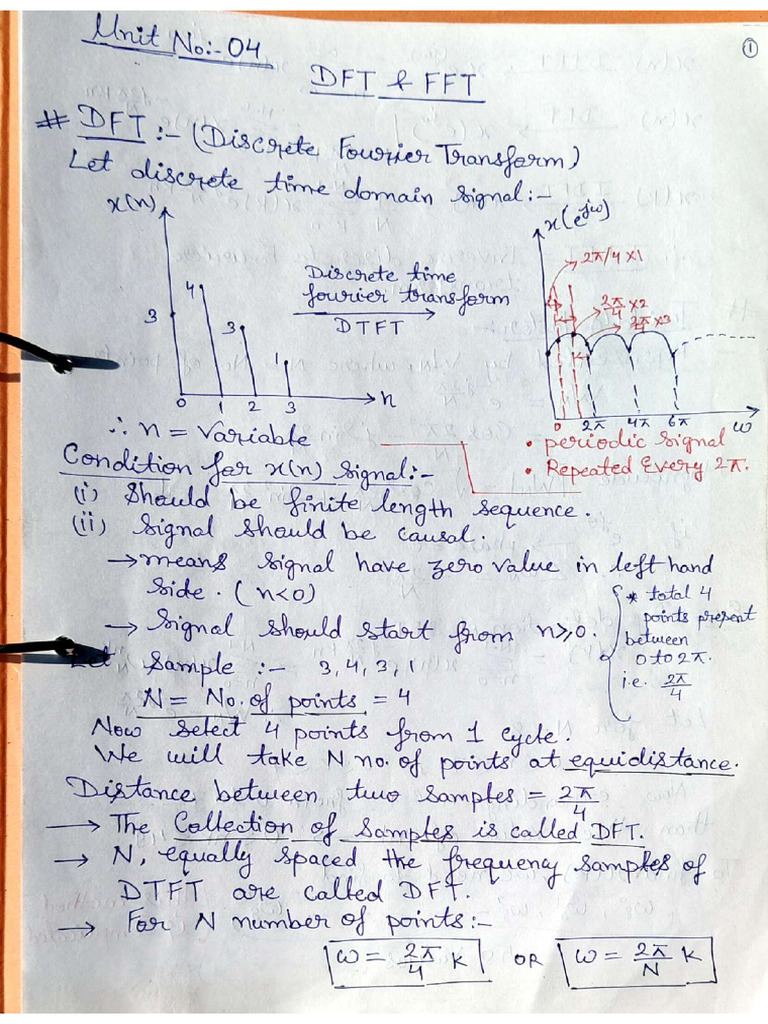 ①
Unit No:- 04
DFT & FFT
# DFT :- (Discrete Fourier Transform)
Let discrete time domain signal:-
x(n)
3
4
3
1
0 1 2 3
n
Discrete time
fourier transform
DTFT
x(e^jω)
2π/4 ×1
2π/4 ×2
2π/4 ×3
0 2π 4π 6π ω
• periodic signal
• Repeated Every 2π.
∴ n = Variable
Condition for x(n) signal:-
(i) Should be finite length sequence.
(ii) Signal should be causal.
→ means signal have zero value in left hand
side. (n<0)
→ Signal should start from n≥0.
* total 4
points present
between
0 to 2π.
i.e. 2π/4
Let Sample :- 3, 4, 3, 1
N = No. of points = 4
Now select 4 points from 1 cycle.
We will take N no. of points at equidistance.
Distance between two samples = 2π/4
→ The Collection of samples is called DFT.
→ N, equally spaced the frequency samples of
DTFT are called DFT.
→ For N number of points:-
ω = 2π/4 K OR ω = 2π/N K